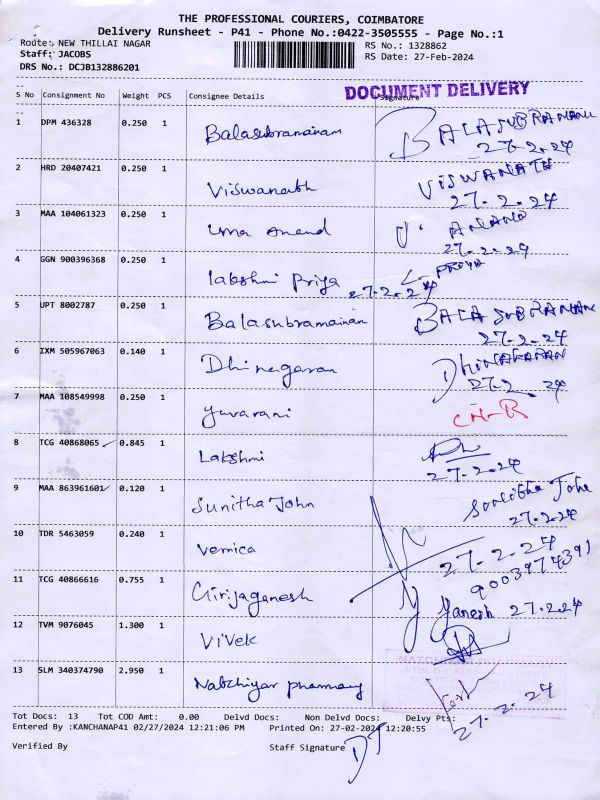 THE PROFESSIONAL COURIERS, COIMBATORE
Delivery Runsheet - P41 - Phone No.:0422-3505555 - Page No.:1
Route: NEW THILLAI NAGAR RS No.: 1328862
Staff: JACOBS RS Date: 27-Feb-2024
DRS No.: DCJB132886201
DOCUMENT DELIVERY
S No Consignment No Weight PCS Consignee Details Signature
1 DPM 436328 0.250 1 Balasubramainam BALASUBRAMANI
27-2-24
2 HRD 20407421 0.250 1 Viswanath VISWANATH
27-2-24
3 MAA 104061323 0.250 1 Uma Anand U. ANAND
27-2-24
4 GGN 900396368 0.250 1 lakshmi Priya PRIYA
27-2-24
5 UPT 8002787 0.250 1 Balasubramainan BALASUBRAMANI
27-2-24
6 IXM 505967063 0.140 1 Dhinagaran DHINAKARAN
27-2-24
7 MAA 108549998 0.250 1 Yuvarani CN-R
8 TCG 40868065 0.845 1 Lakshmi
27-2-24
9 MAA 863961601 0.120 1 Sunitha John Sunitha John
27-2-24
10 TDR 5463059 0.240 1 Vernica 27-2-24
9003974391
11 TCG 40866616 0.755 1 Girijaganesh Ganesh 27-2-24
12 TVM 9076045 1.300 1 Vivek
13 SLM 340374790 2.950 1 Natchiyar pharmacy
27-2-24
Tot Docs: 13 Tot COD Amt: 0.00 Delvd Docs: Non Delvd Docs: Delvy Pts:
Entered By :KANCHANAP41 02/27/2024 12:21:06 PM Printed On: 27-02-2024 12:20:55
Verified By Staff Signature